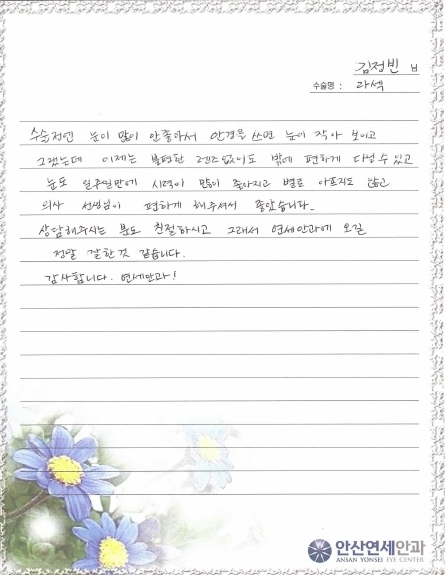 김정빈 님
수술명 : 라섹
수술전엔 눈이 많이 안좋아서 안경을 쓰면 눈이 작아 보이고
그랬는데 이제는 불편한 렌즈없이도 밖에 편하게 다닐수 있고
눈도 일주일만에 시력이 많이 좋아지고 별로 아프지도 않고
의사 선생님이 편하게 해주셔서 좋았습니다.
상담해주시는 분도 친절하시고 그래서 연세안과에 오길
정말 잘한것 같습니다.
감사합니다. 연세안과!
안산연세안과
ANSAN YONSEI EYE CENTER